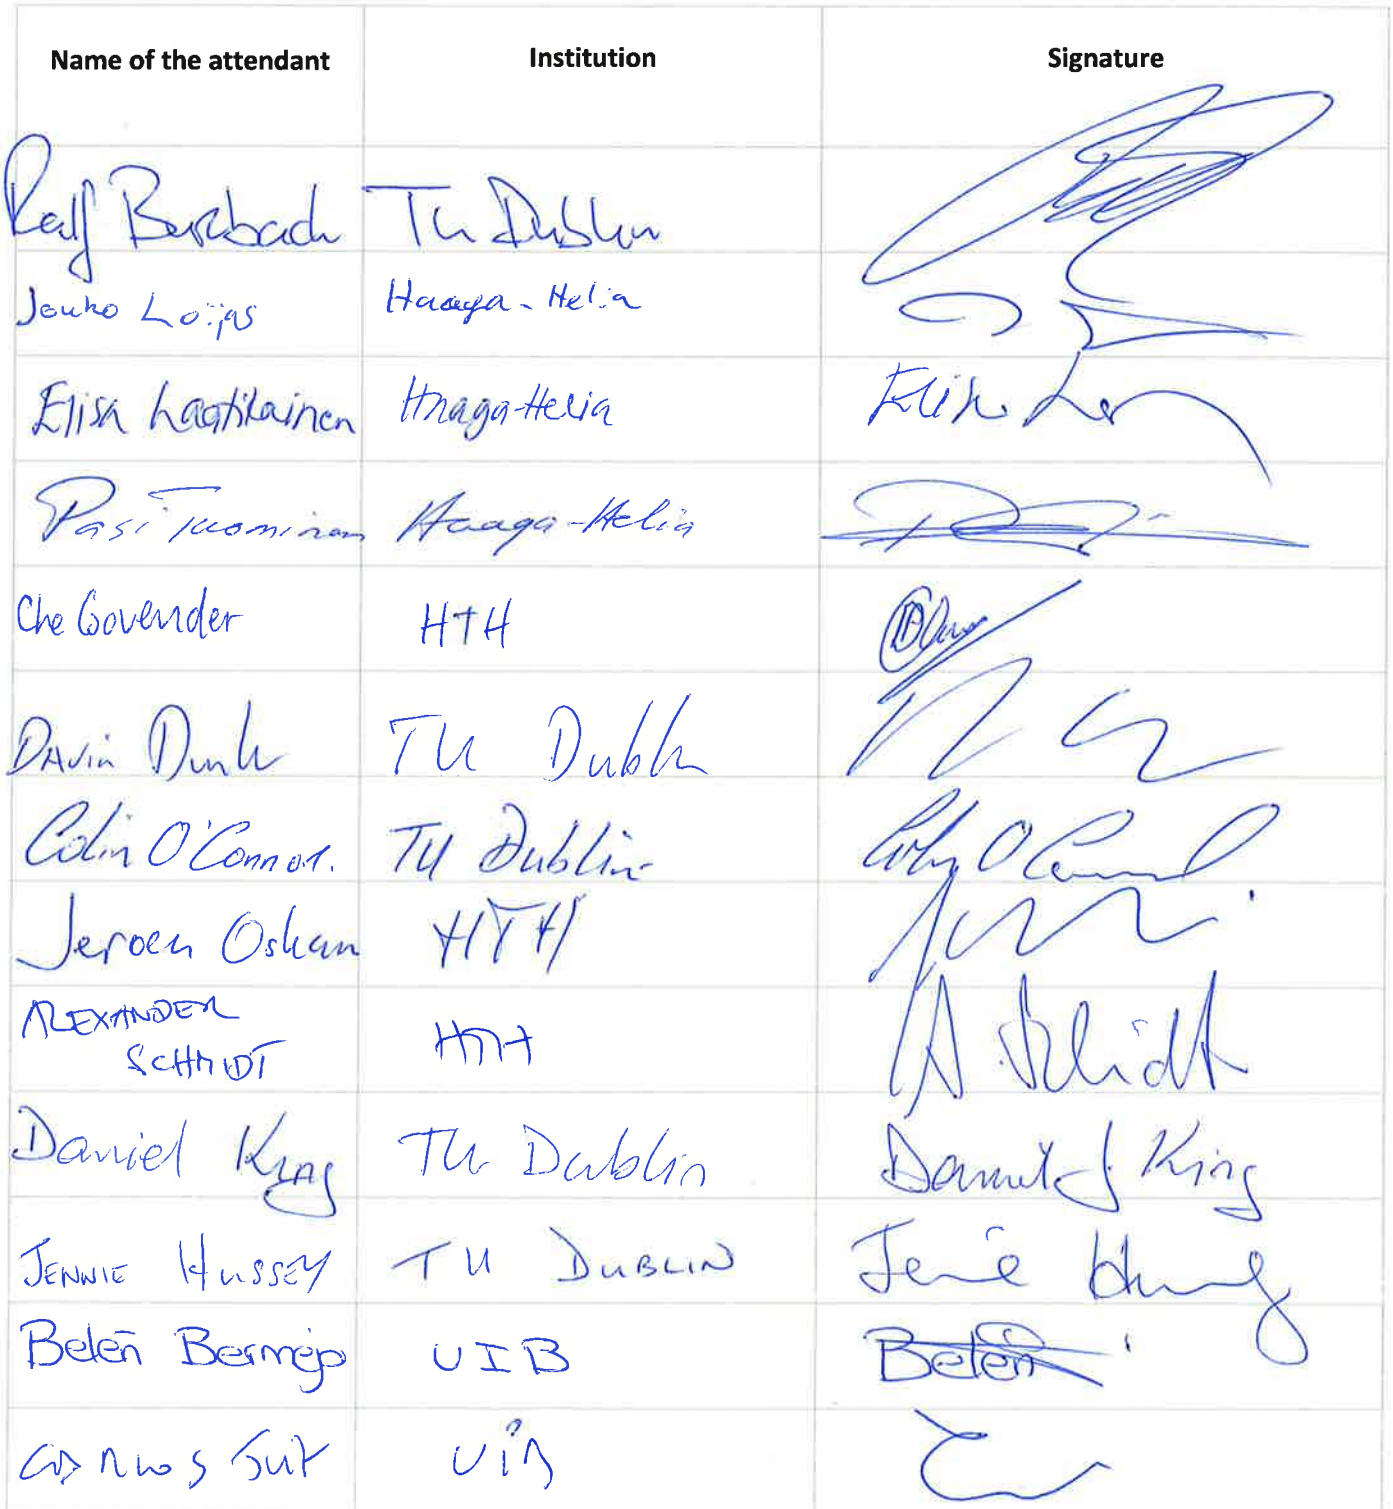 Name of the attendant Institution Signature
Ralf Burbach TU Dublin
Jouko Loijas Haaga-Helia
Elisa Laatikainen Haaga-Helia Elisa
Pasi Tuominen Haaga-Helia
Che Govender HTH
David Dunk TU Dublin
Colin O'Connor. TU Dublin Colin O'Connor
Jeroen Oskam HTH
ALEXANDER
SCHMIDT HTH A. Schmidt
Daniel King TU Dublin Daniel J King
JENNIE HUSSEY TU DUBLIN Jennie Hussey
Belén Bermejo UIB Belén
UIB